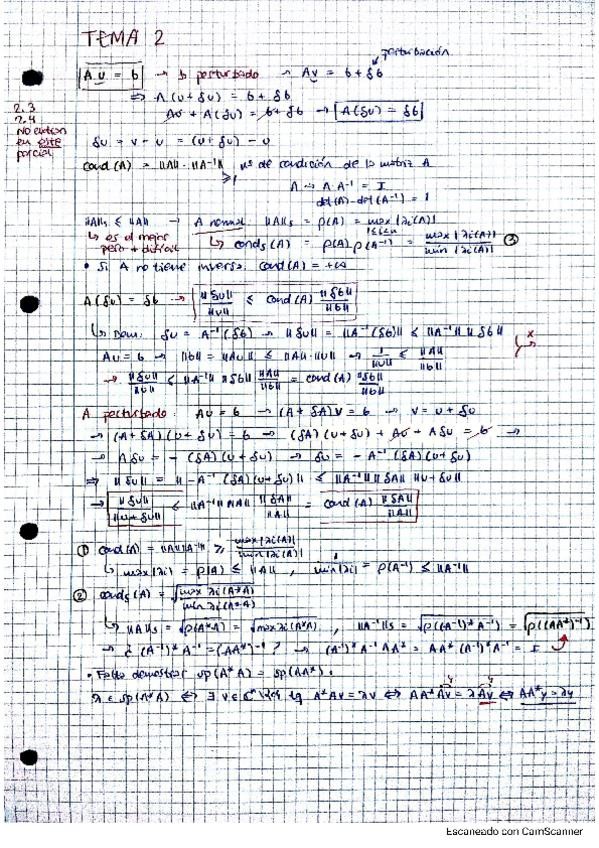 TEMA 2
perturbación
Au = b → b perturbado → Av = b + δb
⇒ A(u + δu) = b + δb
Au + A(δu) = b + δb → A(δu) = δb
2.3
2.4
No entran
en este
parcial
δu = v - u = (u + δu) - u
cond(A) = ||A|| · ||A⁻¹|| nº de condición de la matriz A
≥ 1
A → A · A⁻¹ = I
det(A) · det(A⁻¹) = 1
||A||ₛ ≤ ||A|| → A normal: ||A||ₛ = ρ(A) = max |λi(A)|
1≤i≤n
↳ es el mejor
pero + difícil
↳ condₛ(A) = ρ(A) ρ(A⁻¹) = max |λi(A)| / min |λi(A)| ③
• Si A no tiene inversa, cond(A) = +∞
A(δu) = δb → ||δu|| / ||u|| ≤ cond(A) ||δb|| / ||b||
↳ Dem: δu = A⁻¹(δb) → ||δu|| = ||A⁻¹(δb)|| ≤ ||A⁻¹|| ||δb||
Au = b → ||b|| = ||Au|| ≤ ||A|| · ||u|| → 1 / ||u|| ≤ ||A|| / ||b||
→ ||δu|| / ||u|| ≤ ||A⁻¹|| ||δb|| ||A|| / ||b|| = cond(A) ||δb|| / ||b||
A perturbado: Au = b → (A + δA)v = b → v = u + δu
→ (A + δA)(u + δu) = b → (δA)(u + δu) + Au + Aδu = b →
→ Aδu = - (δA)(u + δu) → δu = - A⁻¹(δA)(u + δu)
⇒ ||δu|| = ||- A⁻¹(δA)(u + δu)|| ≤ ||A⁻¹|| ||δA|| ||u + δu||
→ ||δu|| / ||u + δu|| ≤ ||A⁻¹|| ||A|| ||δA|| / ||A|| = cond(A) ||δA|| / ||A||
① cond(A) = ||A|| ||A⁻¹|| ≥ max |λi(A)| / min |λi(A)|
↳ max |λi| = ρ(A) ≤ ||A|| , 1 / min |λi| = ρ(A⁻¹) ≤ ||A⁻¹||
② condₛ(A) = √(max λi(A*A) / min λi(A*A))
↳ ||A||ₛ = √ρ(A*A) = √max λi(A*A) , ||A⁻¹||ₛ = √ρ((A⁻¹)* A⁻¹) = √ρ((AA*)⁻¹)
→ ¿ (A⁻¹)* A⁻¹ = (AA*)⁻¹ ? → (A⁻¹)* A⁻¹ AA* = AA* (A⁻¹)* A⁻¹ = I
• Falta demostrar sp(A*A) = sp(AA*).
λ ∈ sp(A*A) ⇔ ∃ v ∈ ℂⁿ\{0} tq A*Av = λv ⇔ AA*Av = λAv ⇔ AA*y = λy
Escaneado con CamScanner